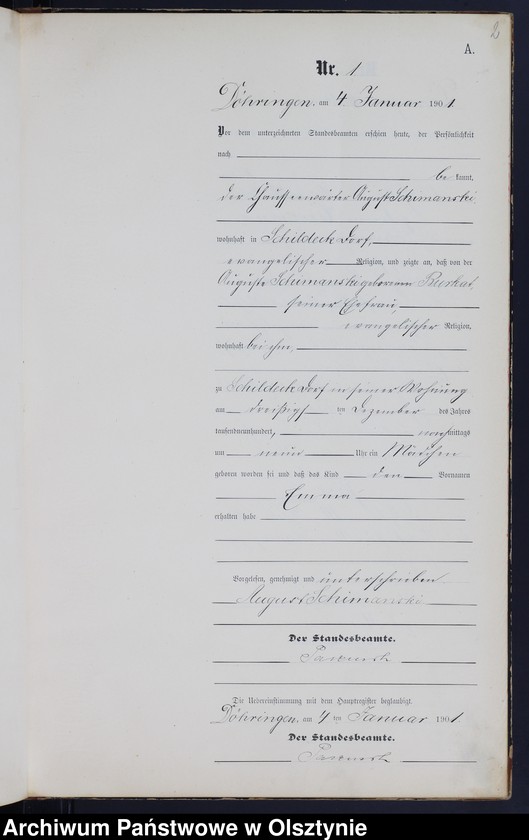 2
A.
Nr. 1
Döhringen, am 4 Januar 1901
Vor dem unterzeichneten Standesbeamten erschien heute, der Persönlichkeit
nach
be kannt,
der Chausseewärter August Schimanski
wohnhaft in Schildeck Dorf,
evangelischer Religion, und zeigte an, daß von der
Auguste Schimanski geborenen
seiner Ehefrau,
evangelischer Religion,
wohnhaft bei ihm,
zu Schildeck Dorf in seiner Wohnung
am dreißigsten Dezember des Jahres
tausendneunhundert, nachmittags
um neun Uhr ein Mädchen
geboren worden sei und daß das Kind den Vornamen
Emma
erhalten habe
Vorgelesen, genehmigt und unterschrieben
August Schimanski
Der Standesbeamte.
Die Uebereinstimmung mit dem Hauptregister beglaubigt.
Döhringen, am 4 ten Januar 1901
Der Standesbeamte.
Archiwum Państwowe w Olsztynie